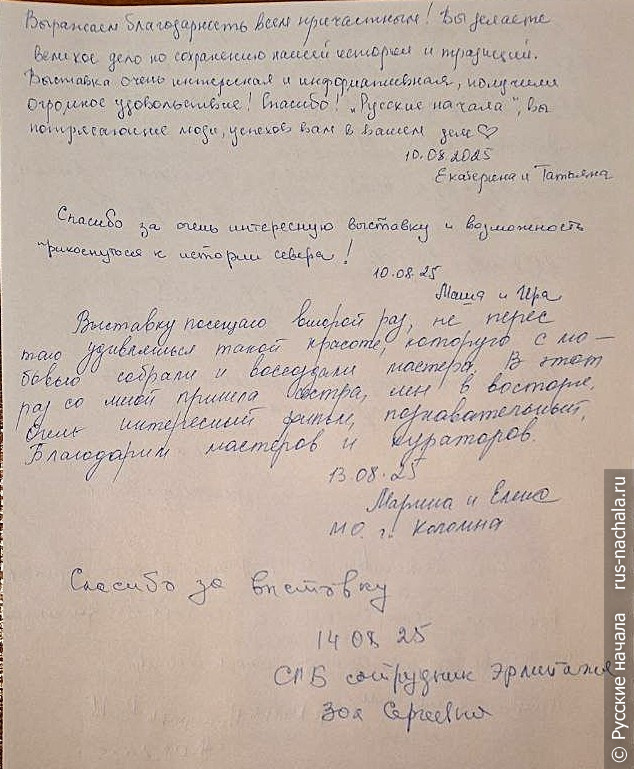 Выражаем благодарность всем причастным! Вы делаете
великое дело по сохранению нашей истории и традиций.
Выставка очень интересная и информативная, получили
огромное удовольствие! Спасибо! „Русские начала", вы
потрясающие люди, успехов вам в вашем деле ♡
10.08.2025
Екатерина и Татьяна
Спасибо за очень интересную выставку и возможность
прикоснуться к истории севера!
10.08.25
Маша и Ира
Выставку посещаю второй раз, не перес
таю удивляться такой красоте, которую с лю-
бовью собрали и воссоздали мастера. В этот
раз со мной пришла сестра, мы в восторге,
Очень интересный фильм, познавательный.
Благодарим мастеров и кураторов.
13.08.25
Марина и Елена
МО. г. Коломна
Спасибо за выставку
14 08 25
СПБ сотрудник Эрмитажа
Зоя Сергеевна
© Русские начала rus-nachala.ru